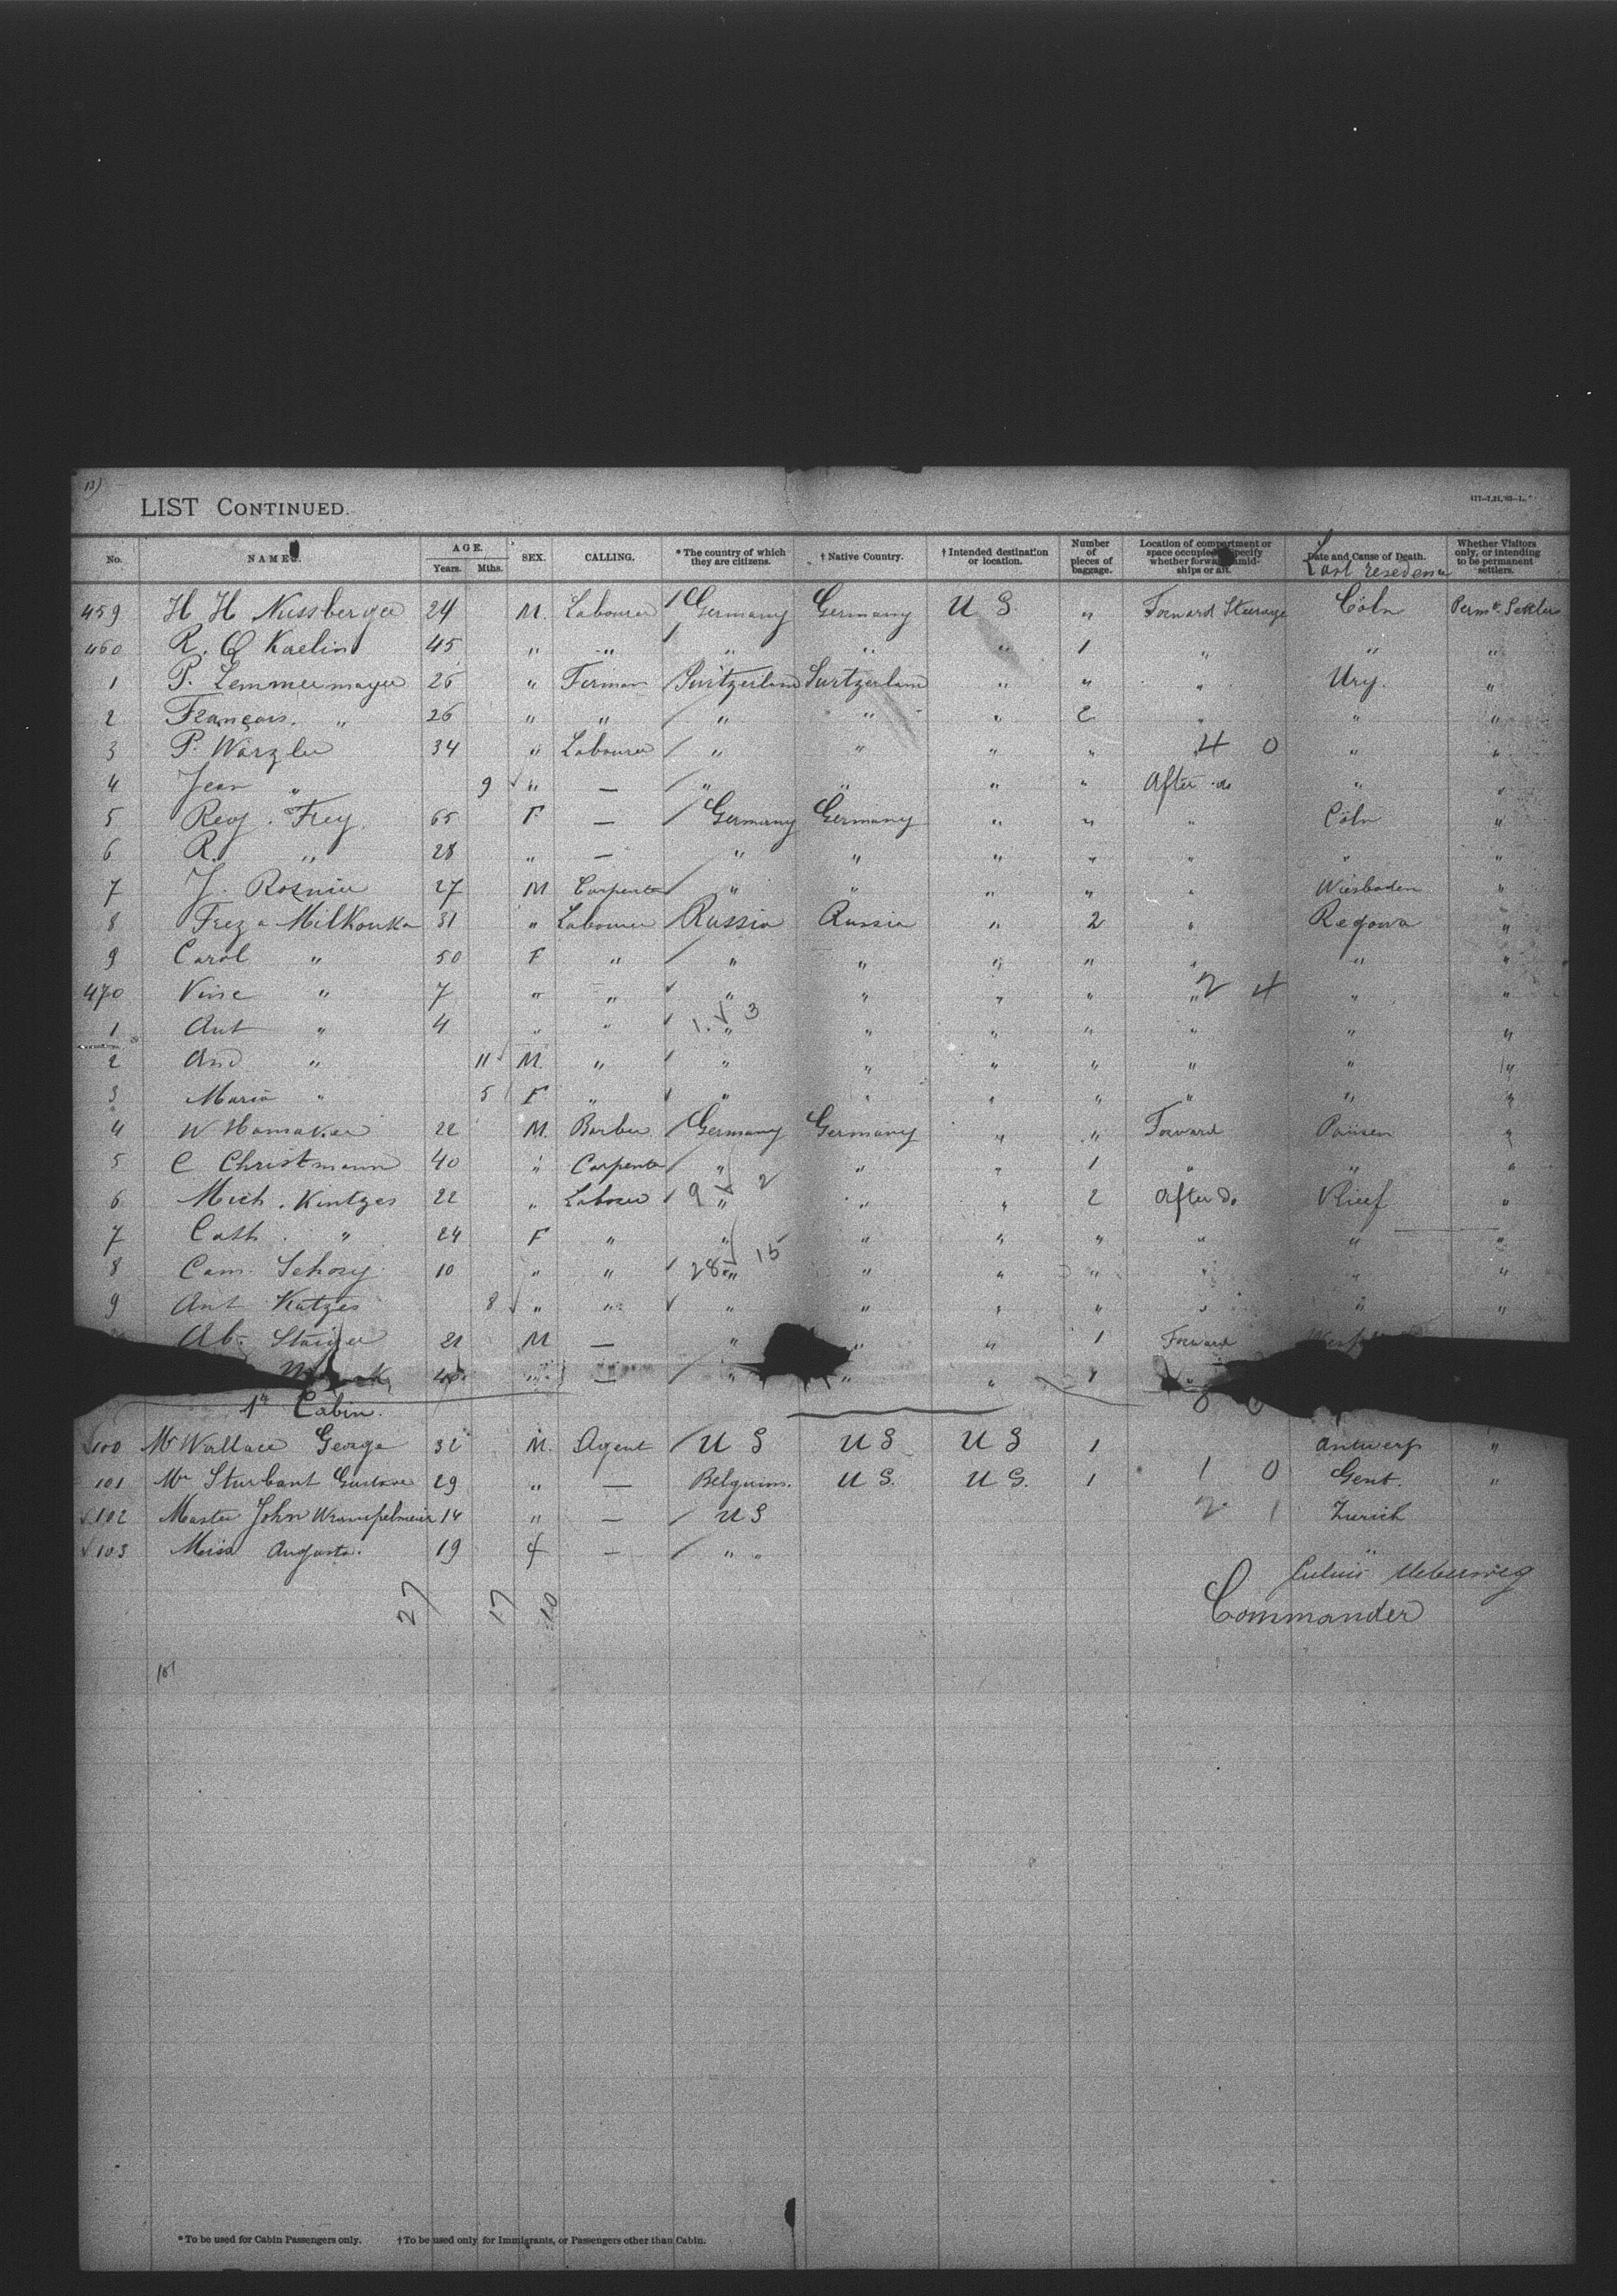 13)
LIST CONTINUED.
No. NAMES. AGE. Years. Mths. SEX. CALLING. *The country of which they are citizens. †Native Country. †Intended destination or location. Number of pieces of baggage. Location of compartment or space occupied, specify whether forward, amidships or aft. Date and Cause of Death. Last residence Whether Visitors only, or intending to be permanent settlers.
459 H H Nussberger 24 M. Labourer / Germany Germany U S " Forward Sturage Cöln Permt. Settlers
460 R. Kaelin 45 " " / " " " 1 " " "
1 P. Lemmermayer 26 " Firman / Switzerland Switzerland " " " Ury. "
2 François. " 26 " " / " " " 2 " " "
3 P. Wärzler 34 " Labourer / " " " " 4 0 " "
4 Jean " 9 " — / " " " " After do " "
5 Reg. Frey 65 F — / Germany Germany " " " Cöln "
6 R. " 28 " — / " " " " " " "
7 J. Rosnier 27 M Carpenter / " " " " " Wiesbaden "
8 Milkouka 31 " Labourer / Russia Russia " 2 " Regowa "
9 Carol " 50 F " / " " " " " " "
470 Vinc " 7 " " / " " " " " 2 4 " "
1 Ant " 4 " " 1. 3 " " " " " " "
2 And " 11 M. " / " " " " " " "
3 Maria " 5 F " / " " " " " " "
4 W Hamaker 22 M. Barber / Germany Germany " " Forward "
5 C Christmann 40 " Carpenter / " " " 1 " " "
6 Mich. Kintzes 22 " Labourer / 9 2 " " " 2 After Do "
7 Cath. " 24 F " " " " " " " "
8 Cam. 10 " " / 28 15 " " " " " " "
9 Ant 8 " " / " " " " " " "
Ab. Staiger 21 M — " " " 1 Forward
" — / " " "
1st Cabin.
100 Mr Wallace George 32 M. Agent / U S U S U S 1 Antwerp "
101 Mr Sturbant Gustave 29 " — Belguim. U S. U S. 1 1 0 Gent. "
102 Master John 14 " — / U S 2 1 Zurich
103 Miss Augusta. 19 f — / " " "
27 17 10
Commander
*To be used for Cabin Passengers only. †To be used only for Immigrants, or Passengers other than Cabin.